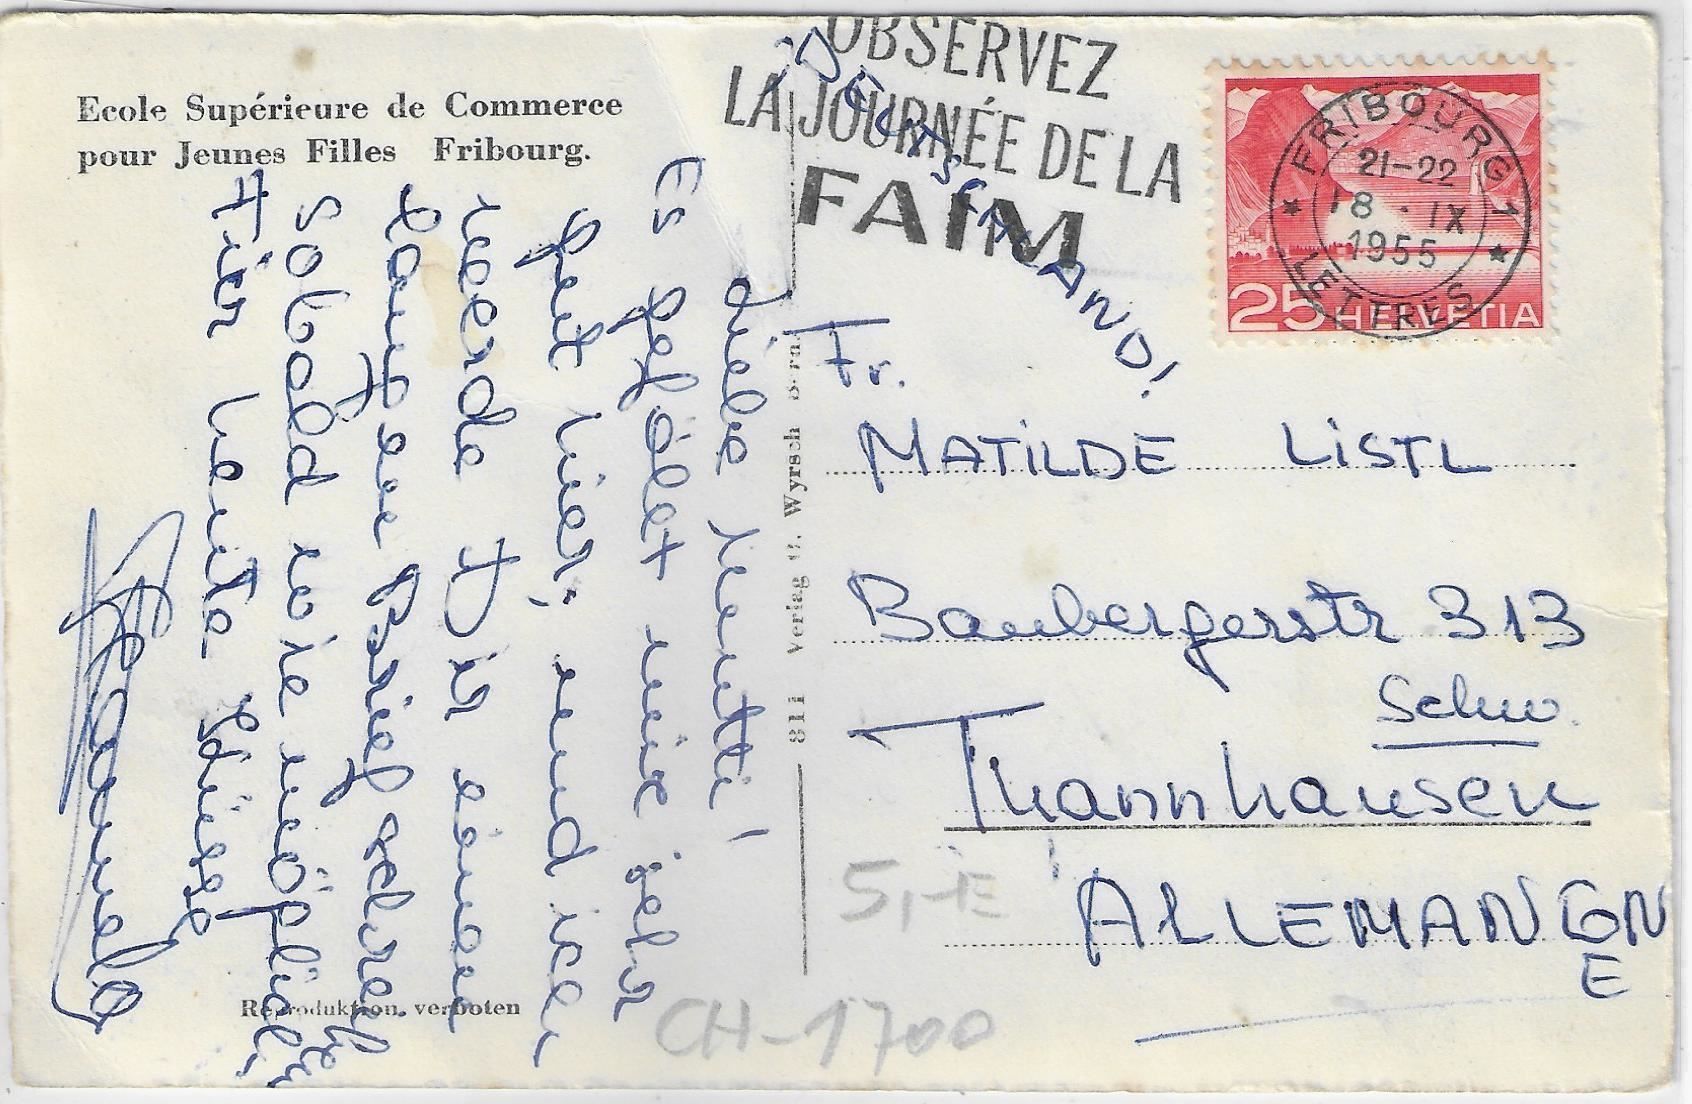 Ecole Supérieure de Commerce
pour Jeunes Filles Fribourg.
OBSERVEZ
LA JOURNÉE DE LA
FAIM
FRIBOURG 1
21-22
18.IX
1955
LETTRES
25 HELVETIA
DEUTSCHLAND!
Fr.
MATILDE LISTL
Baubergerstr 313
Schw.
Thannhausen
ALLEMANGN
E
Liebe Mutti!
Es gefällt mir sehr
gut hier, und ich
werde Dir einen
langen Brief schreiben
sobald wie möglich
Für heute Küsse
811 Verlag O. Wyrsch Bern
Reproduktion verboten
5,-E
CH-1700